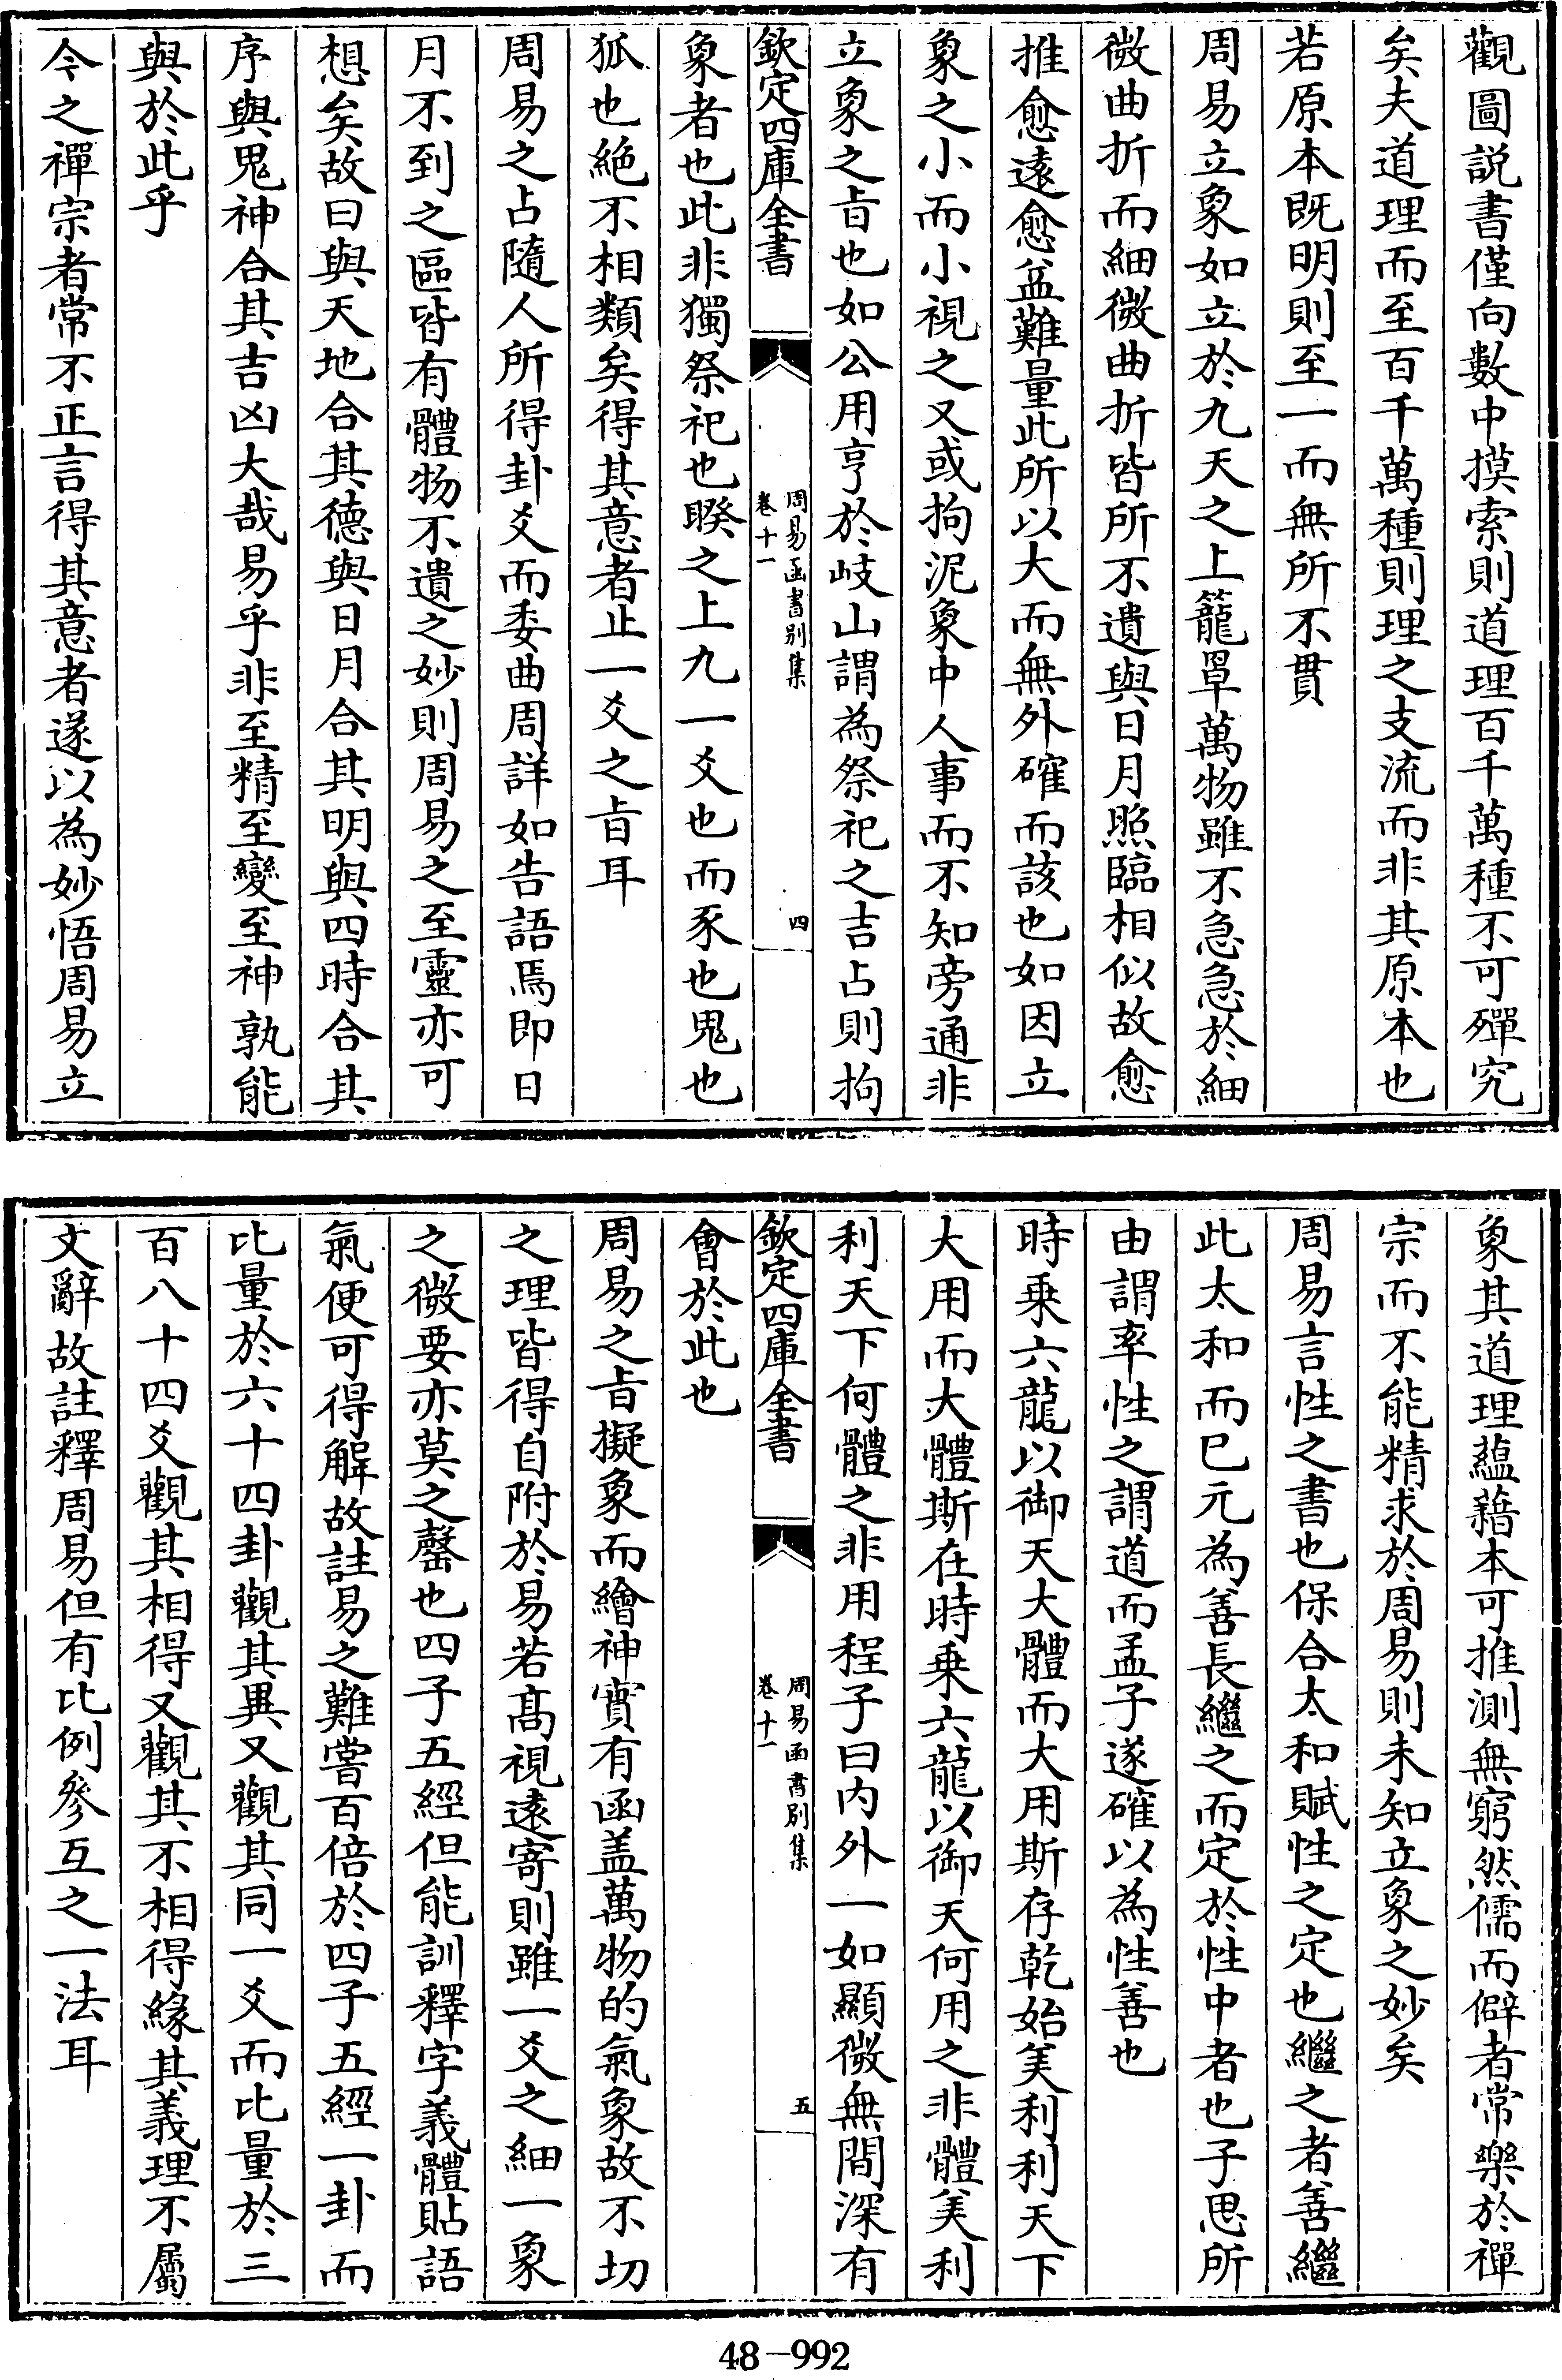 觀圖説書僅向數中摸索則道理百千萬種不可殫究
矣夫道理而至百千萬種則理之支流而非其原本也
若原本既明則至一而無所不貫
周易立象如立於九天之上籠罩萬物雖不急急於細
微曲折而細微曲折皆所不遺與日月照臨相似故愈
推愈遠愈盆難量此所以大而無外確而該也如因立
象之小而小視之又或拘泥象中人事而不知旁通非
立象之㫖也如公用亨於岐山謂為祭祀之吉占則拘
欽定四庫全書
周易函書别集
卷十一
四
象者也此非獨祭祀也睽之上九一爻也而豕也鬼也
狐也絶不相類矣得其意者止一爻之㫖耳
周易之占隨人所得卦爻而委曲周詳如告語焉即日
月不到之區皆有體物不遺之妙則周易之至靈亦可
想矣故曰與天地合其德與日月合其明與四時合其
序與鬼神合其吉凶大哉易乎非至精至變至神孰能
與於此乎
今之禪宗者常不正言得其意者遂以為妙悟周易立
象其道理蘊藉本可推測無窮然儒而僻者常樂於禪
宗而不能精求於周易則未知立象之妙矣
周易言性之書也保合太和賦性之定也繼之者善繼
此太和而已元為善長繼之而定於性中者也子思所
由謂率性之謂道而孟子遂確以為性善也
時乗六龍以御天大體而大用斯存乾始美利利天下
大用而大體斯在時乗六龍以御天何用之非體美利
利天下何體之非用程子曰内外一如顯微無間深有
欽定四庫全書
周易函書别集
卷十一
五
會於此也
周易之㫖擬象而繪神實有函盖萬物的氣象故不切
之理皆得自附於易若髙視遠寄則雖一爻之細一象
之微要亦莫之罄也四子五經但能訓釋字義體貼語
氣便可得解故註易之難嘗百倍於四子五經一卦而
比量於六十四卦觀其異又觀其同一爻而比量於三
百八十四爻觀其相得又觀其不相得緣其義理不屬
文辭故註釋周易但有比例參互之一法耳
48-992